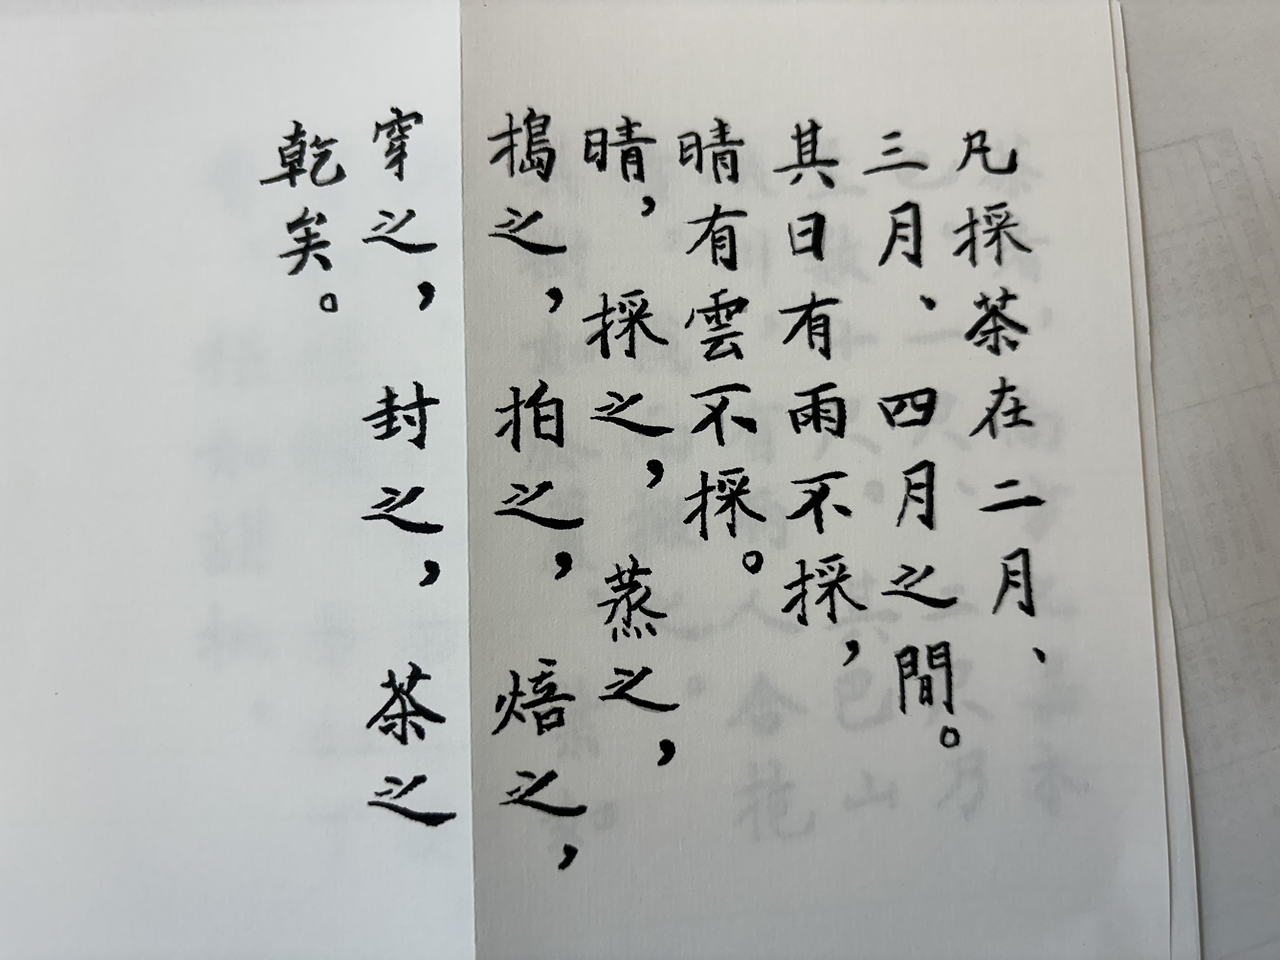 凡採茶在二月、
三月、四月之間。
其日有雨不採，
晴有雲不採。
晴，採之，蒸之，
搗之，拍之，焙之，
穿之，封之，茶之
乾矣。